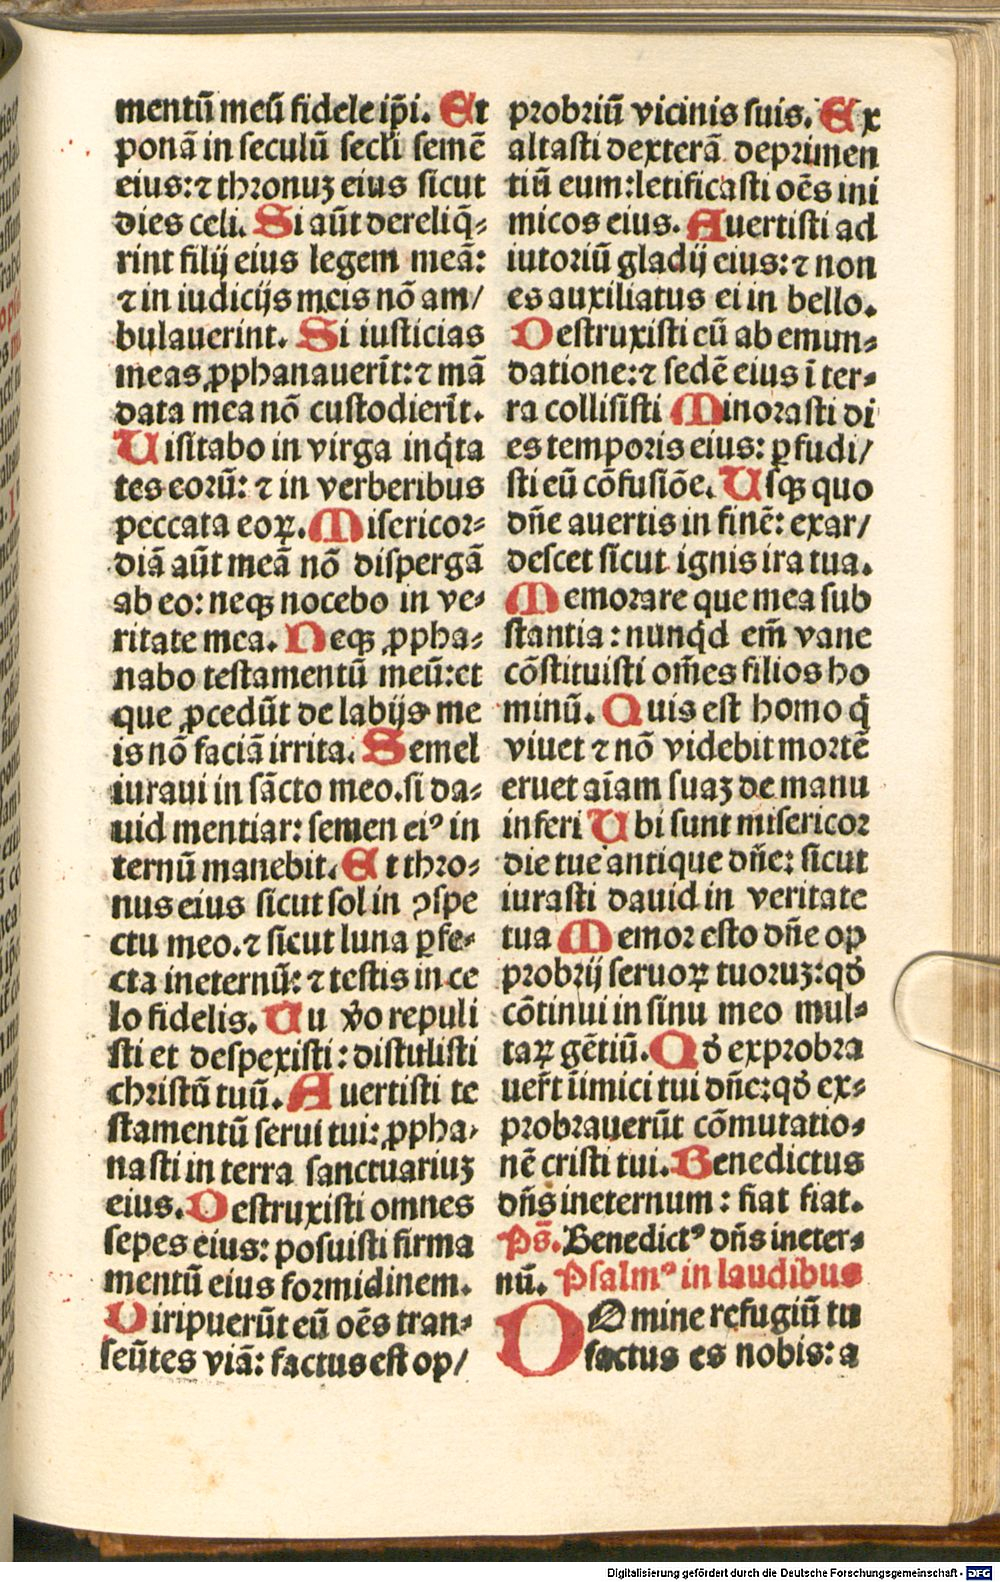 mentū meū fidele ip̄i. Et
ponā in seculū secl̄i semē
eius: ⁊ thronuꝫ eius sicut
dies celi. Si aūt dereliq̄⸗
rint filij eius legem meā:
⁊ in iudicijs meis nō am/
bulauerint. Si iusticias
meas ꝓphanauerīt: ⁊ mā
data mea nō custodierīt.
Uisitabo in virga inqͥta
tes eorū: ⁊ in verberibus
peccata eoꝝ. Misericor⸗
diā aūt meā nō dispergā
ab eo: neqꝫ nocebo in ve⸗
ritate mea. Neqꝫ ꝓpha⸗
nabo testamentū meū: et
que ꝓcedūt de labijs me
is nō faciā irrita. Semel
iuraui in sācto meo. si da⸗
uid mentiar: semen eiꝰ in
ternū manebit. Et thro⸗
nus eius sicut sol in ꝯspe
ctu meo. ⁊ sicut luna ꝑfe⸗
cta ineternū: ⁊ testis in ce
lo fidelis. Tu v̄o repuli
sti et despexisti: distulisti
christū tuū. Auertisti te
stamentū serui tui: ꝓpha⸗
nasti in terra sanctuariuꝫ
eius. Destruxisti omnes
sepes eius: posuisti firma
mentū eius formidinem.
Diripuerūt eū oēs tran⸗
seūtes viā: factus est op/
probriū vicinis suis. Ex
altasti dexterā deprimen
tiū eum: letificasti oēs ini
micos eius. Auertisti ad
iutoriū gladij eius: ⁊ non
es auxiliatus ei in bello.
Destruxisti eū ab emun⸗
datione: ⁊ sedē eius ī ter⸗
ra collisisti Minorasti di
es temporis eius: ꝑfudi/
sti eū cōfusiōe. Usqꝫ quo
dn̄e auertis in finē: exar/
descet sicut ignis ira tua.
Memorare que mea sub
stantia: nunqͥd em̄ vane
cōstituisti om̄es filios ho
minū. Quis est homo qͥ
viuet ⁊ nō videbit mortē
eruet aīam suaꝫ de manu
inferi Ubi sunt misericor
die tue antique dn̄e: sicut
iurasti dauid in veritate
tua Memor esto dn̄e op
probrij seruoꝝ tuoruꝫ: qd̄
cōtinui in sinu meo mul⸗
taꝝ gētiū. Qd̄ exprobra
uer̄t īimici tui dn̄e: qd̄ ex⸗
probrauerūt cōmutatio⸗
nē cristi tui. Benedictus
dn̄s ineternum: fiat fiat.
Ps̄. Benedictꝰ dn̄s ineter⸗
nū. Psalmꝰ in laudibus
DOmine refugiū tu
factus es nobis: a
Digitalisierung gefördert durch die Deutsche Forschungsgemeinschaft - DFG